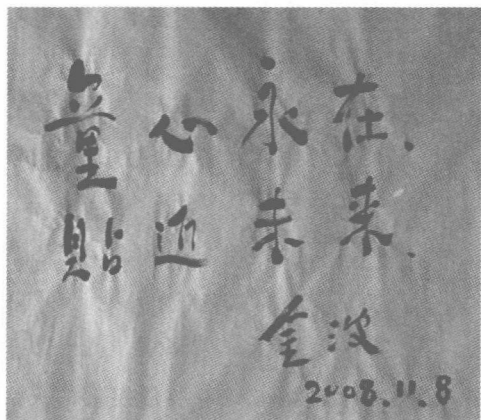 童心永在.
貼近未来.
金波
2008.11.8